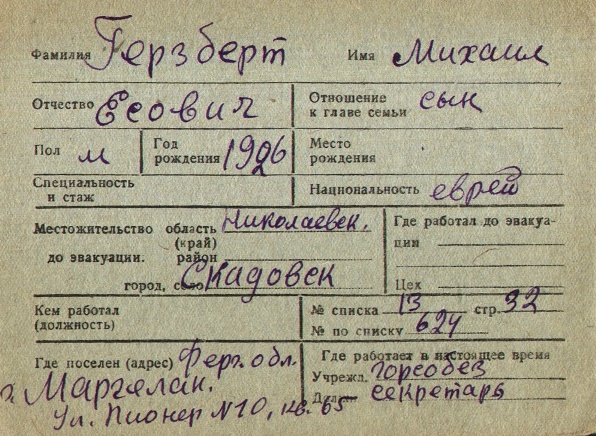 Фамилия Герзберт Имя Михаил
Отчество Ёсович Отношение к главе семьи сын
Пол м Год рождения 1926 Место рождения
Специальность и стаж Национальность еврей
Местожительство область Николаевск. Где работал до эвакуа-
(край) ции
до эвакуации. район
город, село Скадовск Цех
Кем работал № списка 13 стр. 32
(должность) № по списку 624
Где поселен (адрес) Ферг. обл. Где работает в настоящее время
г. Маргелан. Учрежд. горсобез
Ул. Пионер N10, кв. 65 Должн секретарь